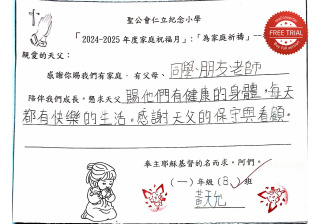 聖公會仁立紀念小學
「2024-2025年度家庭祝福月」:「為家庭祈禱」
FREE TRIAL
親愛的天父:
感謝你賜我們有家庭,有父母、同學、朋友、老師
陪伴我們成長。懇求天父賜他們有健康的身體,每天
都有快樂的生活。感謝天父的保守與看顧。
奉主耶穌基督的名而求,阿們。
(一)年級(B)班